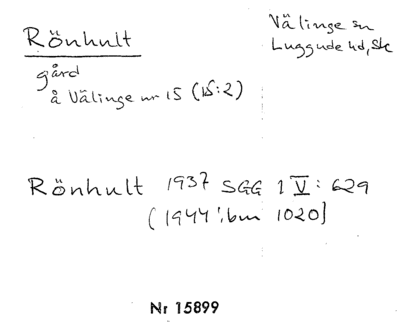 Rönhult
Välinge sn
Luggude hd, Sk
gård
å Välinge nr 15 (15:2)
Rönhult 1937 SGG 1 V: 629
(1944 1020)
Nr 15899